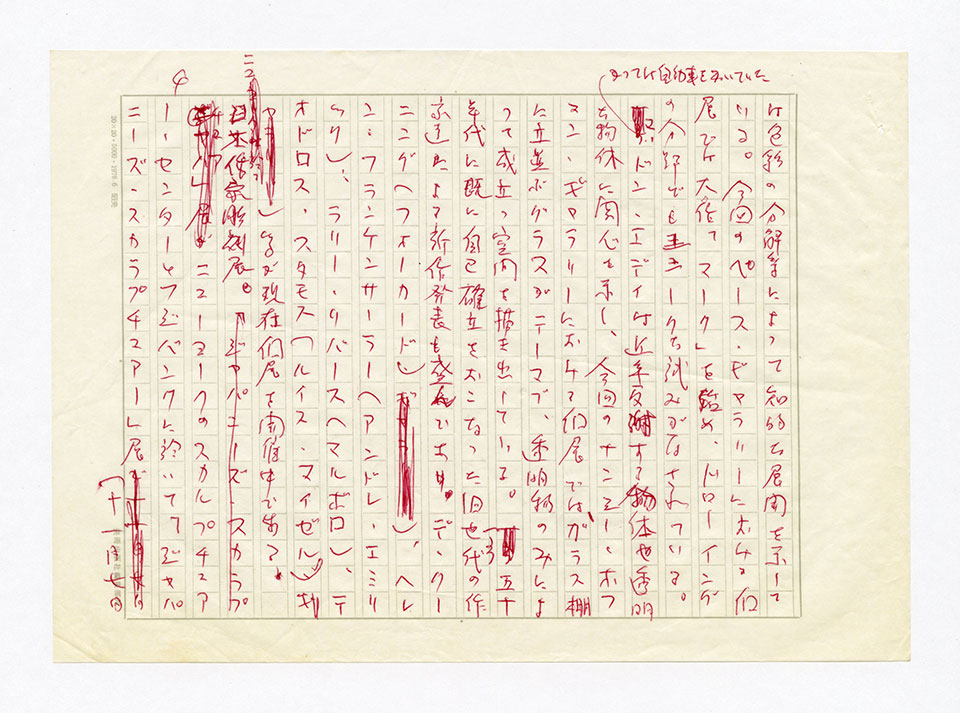 は色彩の分解等によって知的な展開を示して
いる。今回のペース・ギャラリーにおける個
展では大作て マーク」を始め、ドローイング
の分野でもユニークな試みがなされている。
かつては自動車を
ドン・エディは近年反射する物体や透明
な物体に関心を示し、今回のナンシー・ホフ
マン・ギャラリーにおける個展では、ガラス棚
に立並ぶグラスがテーマで、透明物のみによ
って成立つ空間を描き出している。 五十
年代に既に自己確立をおこなった旧世代の作
家達による新作発表も盛んであり。デ・クー
ニング(フォーカード)、ヘレ
ン・フランケンサーラー(アンドレ・エミリ
ック)、ラリー・リバース(マルボロ)、テ
オドロス・スタモス(ルイス・マイゼル)
等が現在個展を開催中である。
日本作家彫刻展。 ジャパニーズ・スカラプ
チュア 展 ニューヨークのスカルプチュア
ー・センターとフジバンクに於いて「ジャパ
ニーズ・スカラプチュアー」展が
(十一月七日
4
20×20・1978.6